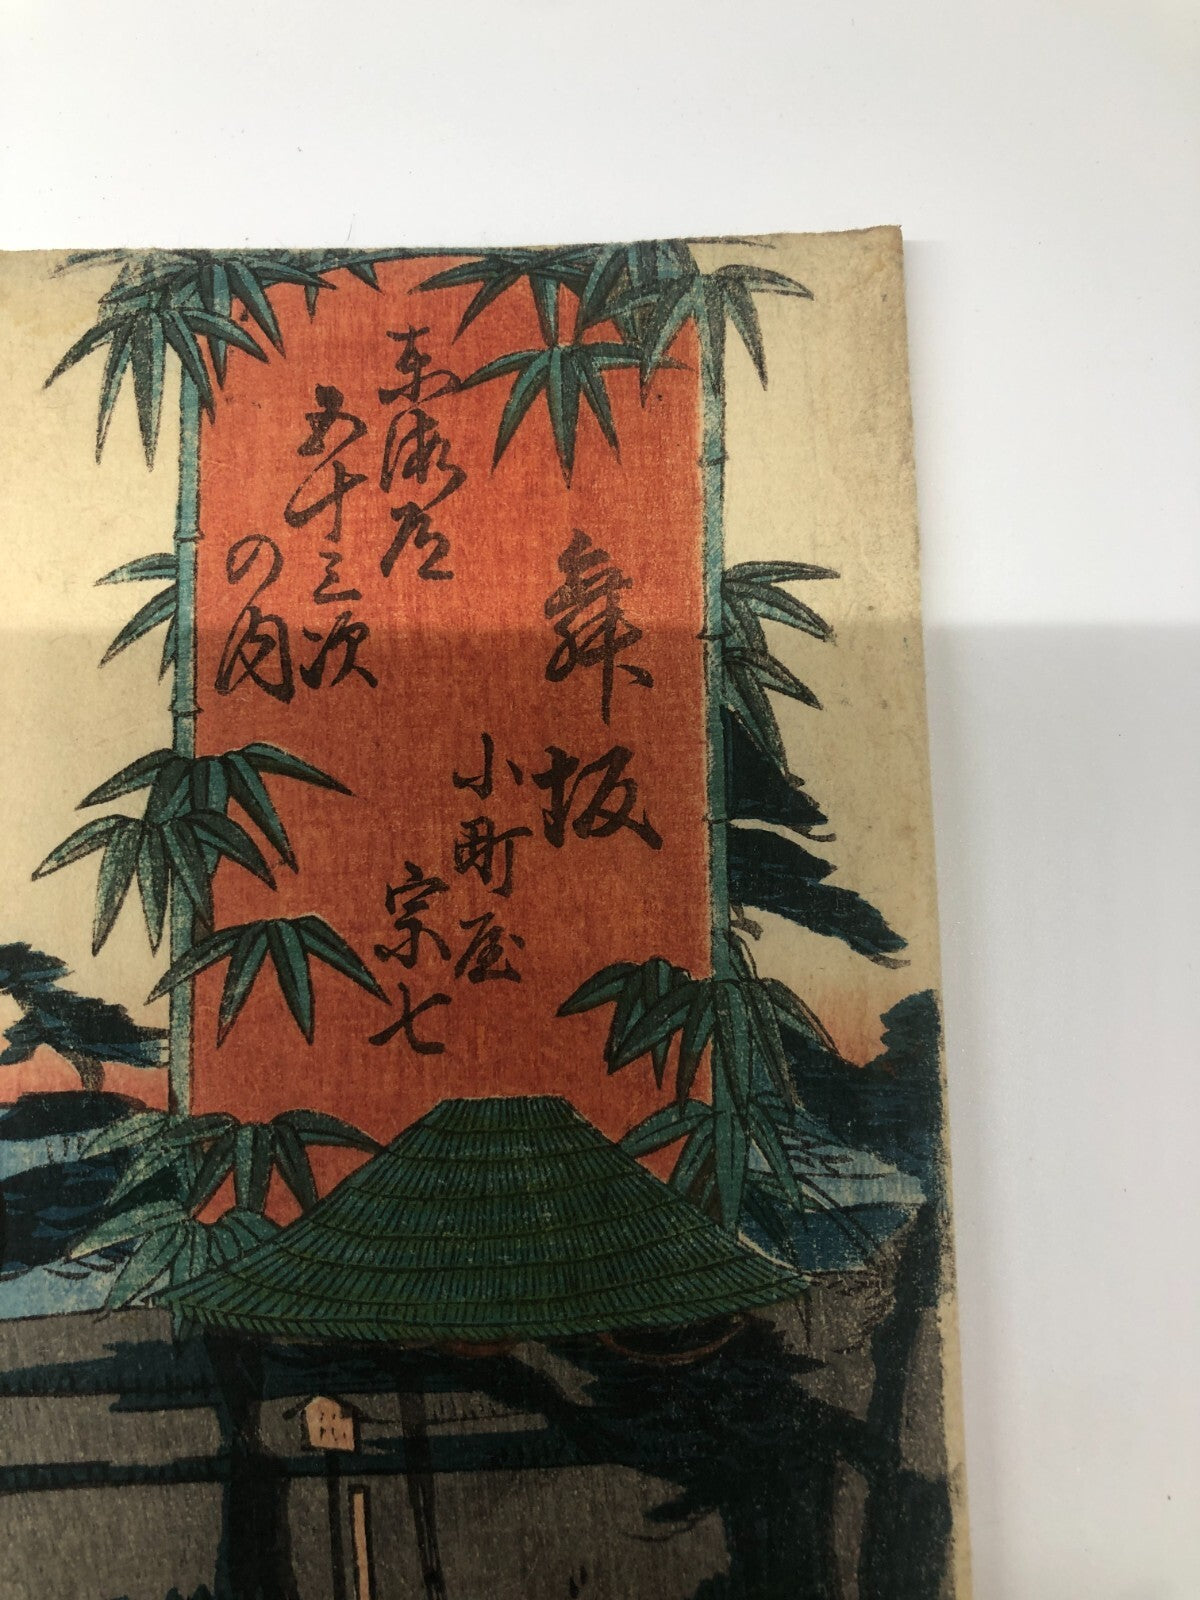 東海道
五十三次
の内
舞坂
小町屋
宗七